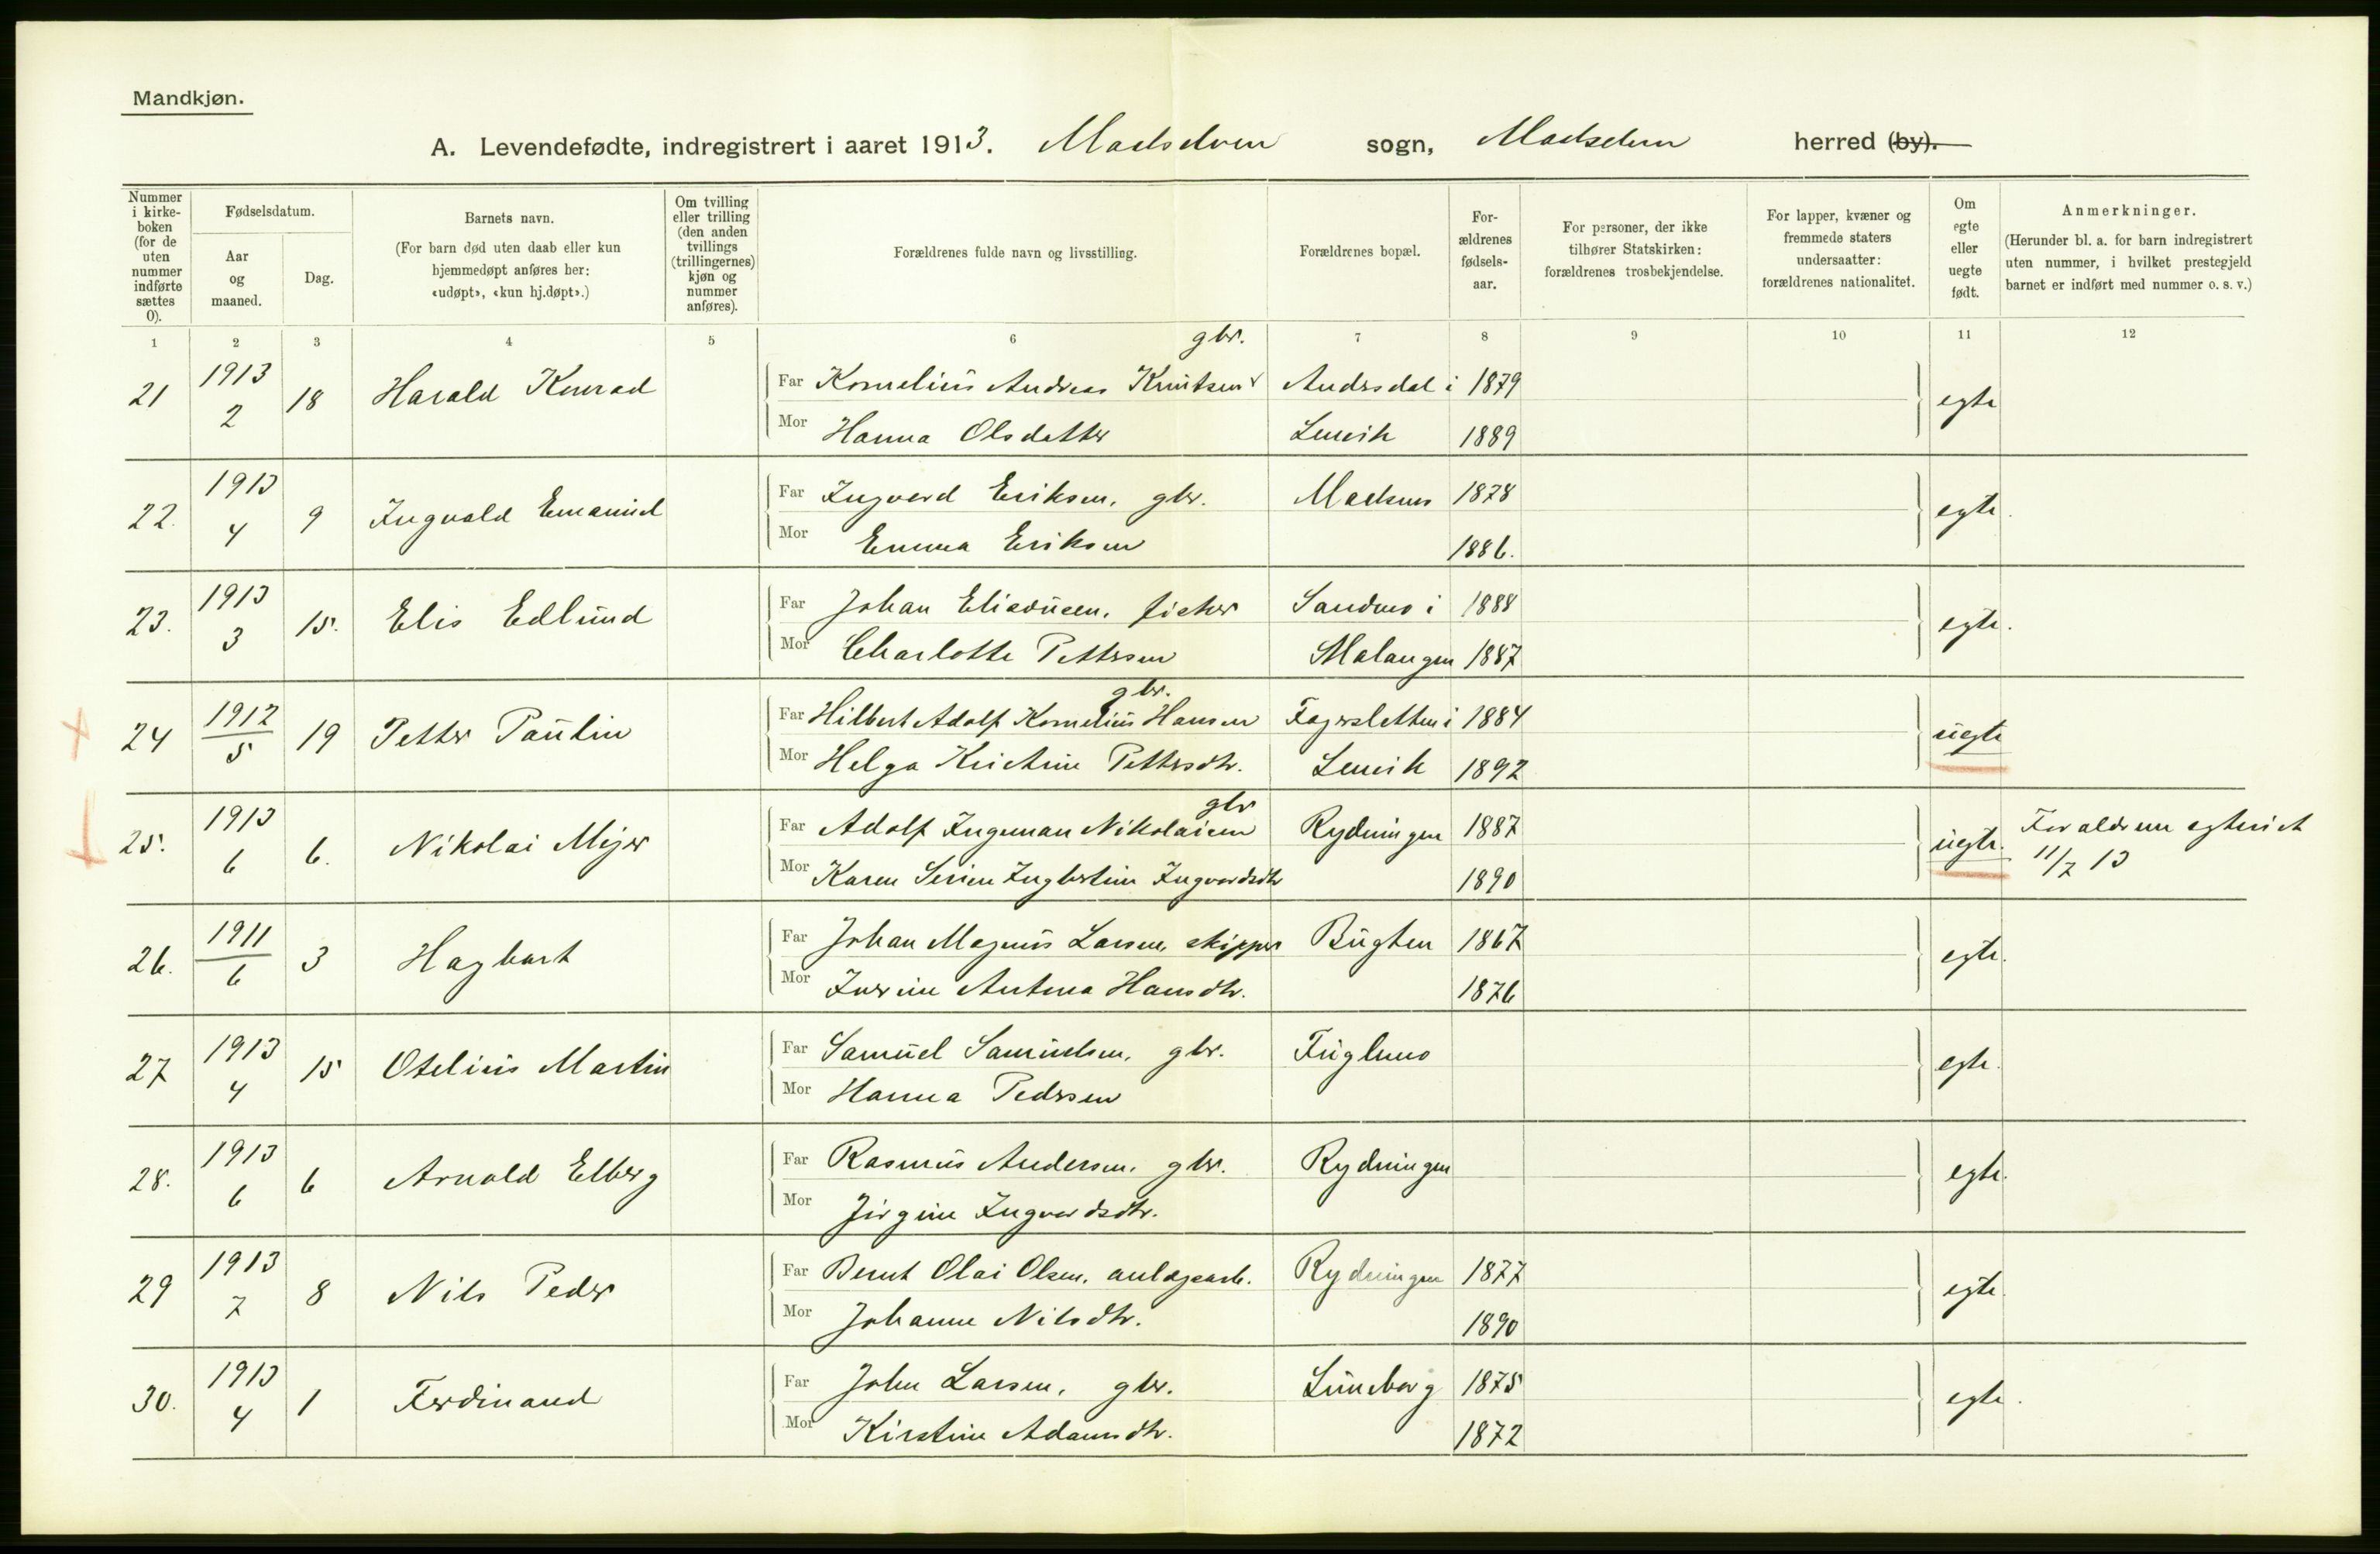 Mandkjøn.
A. Levendefødte, indregistrert i aaret 1913. Maalselven sogn, Maalselven herred (by).
Nummer i kirke-boken (for de uten nummer indførte sættes 0).
Fødselsdatum.
Aar og maaned.
Dag.
Barnets navn.
(For barn død uten daab eller kun hjemmedøpt anføres her: «udøpt», «kun hj.døpt».)
Om tvilling eller trilling (den anden tvillings (trillingernes) kjøn og nummer anføres).
Forældrenes fulde navn og livsstilling.
Forældrenes bopæl.
For-ældrenes fødsels-aar.
For personer, der ikke tilhører Statskirken: forældrenes trosbekjendelse.
For lapper, kvæner og fremmede staters undersaatter: forældrenes nationalitet.
Om egte eller uegte født.
Anmerkninger.
(Herunder bl. a. for barn indregistrert uten nummer, i hvilket prestegjeld barnet er indført med nummer o. s. v.)
1 2 3 4 5 6 7 8 9 10 11 12
gbr.
21 1913 2 18 Harald Konrad Far Kornelius Andreas Knutsen Andersdal i 1879 egte
Mor Hanna Olsdatter Lenvik 1889
22. 1913 4 9 Ingvald Emanuel Far Ingvard Eriksen, gbr. Maelsnes 1878 egte.
Mor Emma Eriksen 1886.
23. 1913 3 15. Elis Edlund Far Johan Eliasusen, fisker Sandmo i 1888 egte.
Mor Charlotte Pettersen Malangen 1887
gbr.
24 1912 5 19 Petter Paulin Far Hilbert Adolf Kornelius Hansen Fagersletten i 1884 uegte
Mor Helga Kristine Pettersdtr. Lenvik 1892
gbr
25. 1913 6 6. Nikolai Mejer Far Adolf Ingeman Nikolaisen Rydningen 1887 uegte. Forældrene egteviet
Mor Karen Serine Ingbertine Ingvardsdtr 1890 11/7 13
26. 1911 6 3 Hagbart Far Johan Magnus Larsen, skipper Bugten 1867 egte.
Mor Iverine Antona Hansdtr. 1876
27 1913 4 15 Otelius Martin Far Samuel Samuelsen, gbr. Fuglmo egte.
Mor Hanna Pedersen
28. 1913 6 6 Arnold Elberg Far Rasmus Andersen, gbr. Rydningen egte.
Mor Jirgine Ingvardsdtr.
29 1913 7 8 Nils Peder Far Bernt Olai Olsen, anlægsarb. Rydningen 1877 egte.
Mor Johanne Nilsdtr. 1890
30. 1913 4 1 Ferdinand Far John Larsen, gbr. Luneborg 1875 egte.
Mor Kirstine Adamsdtr. 1872